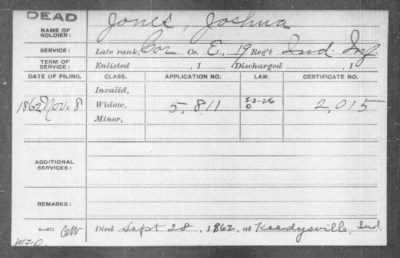 DEAD
NAME OF SOLDIER: Jones, Joshua
SERVICE: Late rank, Cor Co. E, 19 Reg't Ind. Inf
TERM OF SERVICE: Enlisted , 1 Discharged , 1
DATE OF FILING. CLASS. APPLICATION NO. LAW. CERTIFICATE NO.
Invalid,
1862 Nov. 8 Widow, 5,811 2,015
Minor,
ADDITIONAL SERVICES:
REMARKS:
Died Sept 28, 1862, at Keedysville, Md